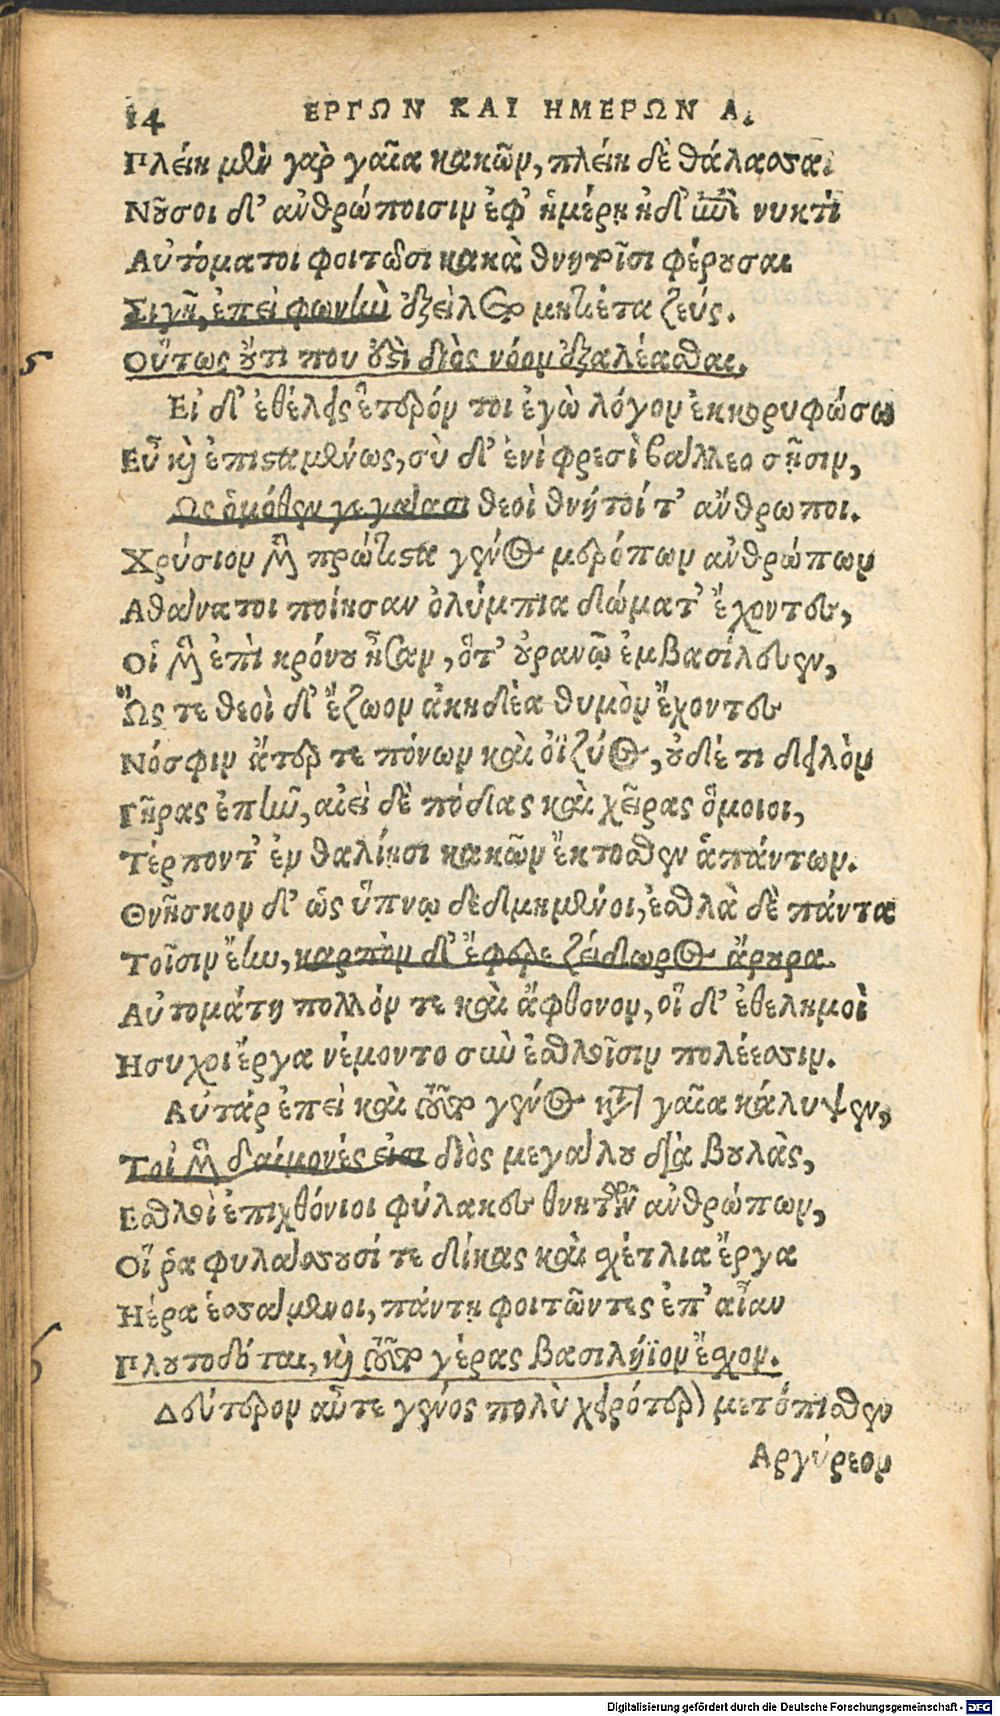 14 ΕΡΓΩΝ ΚΑΙ ΗΜΕΡΩΝ Α.
Πλείη μὲν γαρ γαῖα κακῶν, πλείη δὲ θάλασσα:
Νοῦσοι δ' ἀνθρώποισιν ἐφ' ἡμέρῃ ἠδ' ἐπὶ νυκτὶ
Αὐτόματοι φοιτῶσι κακὰ θνητοῖσι φέρουσαι
Σιγῇ, ἐπεὶ φωνὴν ἐξείλετο μητίετα ζεύς.
5 Οὕτως οὔτι που ἐστὶ διὸς νόον ἐξαλέασθαι,
Εἰ δ' ἐθέλεις ἕτερόν τοι ἐγὼ λόγον ἐκκορυφώσω
Εὖ καὶ ἐπισταμένως, σὺ δ' ἐνὶ φρεσὶ βάλλεο σῇσιν,
Ως ὁμόθεν γεγάασι θεοὶ θνητοί τ' ἄνθρωποι.
Χρύσιον μὲν πρώτιστα γένος μερόπων ἀνθρώπων
Αθάνατοι ποίησαν ὀλύμπια δώματ' ἔχοντες,
Οἱ μὲν ἐπὶ κρόνου ἦσαν, ὅτ' οὐρανῷ ἐμβασίλευεν,
Ὥς τε θεοὶ δ' ἔζωον ἀκηδέα θυμὸν ἔχοντες
Νόσφιν ἄτερ τε πόνων καὶ οἰζύος, οὐδέ τι δειλὸν
Γῆρας ἐπῆν, αἰεὶ δὲ πόδας καὶ χεῖρας ὅμοιοι,
Τέρποντ' ἐν θαλίῃσι κακῶν ἔκτοσθεν ἁπάντων.
Θνῆσκον δ' ὡς ὕπνῳ δεδμημένοι, ἐσθλὰ δὲ πάντα
Τοῖσιν ἔην, καρπὸν δ' ἔφερε ζείδωρος ἄρουρα
Αὐτομάτη πολλόν τε καὶ ἄφθονον, οἳ δ' ἐθελημοὶ
Ησυχοι ἔργα νέμοντο σὺν ἐσθλοῖσιν πολέεσσιν.
Αὐτάρ ἐπεὶ καὶ τοῦτο γένος κατὰ γαῖα κάλυψεν,
Τοὶ μὲν δαίμονές εἰσι διὸς μεγάλου διὰ βουλὰς,
Εσθλοὶ ἐπιχθόνιοι φύλακες θνητῶν ἀνθρώπων,
Οἵ ῥα φυλάσσουσί τε δίκας καὶ σχέτλια ἔργα
Ηέρα ἑσσάμενοι, πάντῃ φοιτῶντες ἐπ' αἶαν
Πλουτοδόται, καὶ τοῦτο γέρας βασιλήϊον ἔσχον.
Δεύτερον αὖτε γένος πολὺ χειρότερον μετόπισθεν
Αργύρεον
Digitalisierung gefördert durch die Deutsche Forschungsgemeinschaft - DFG